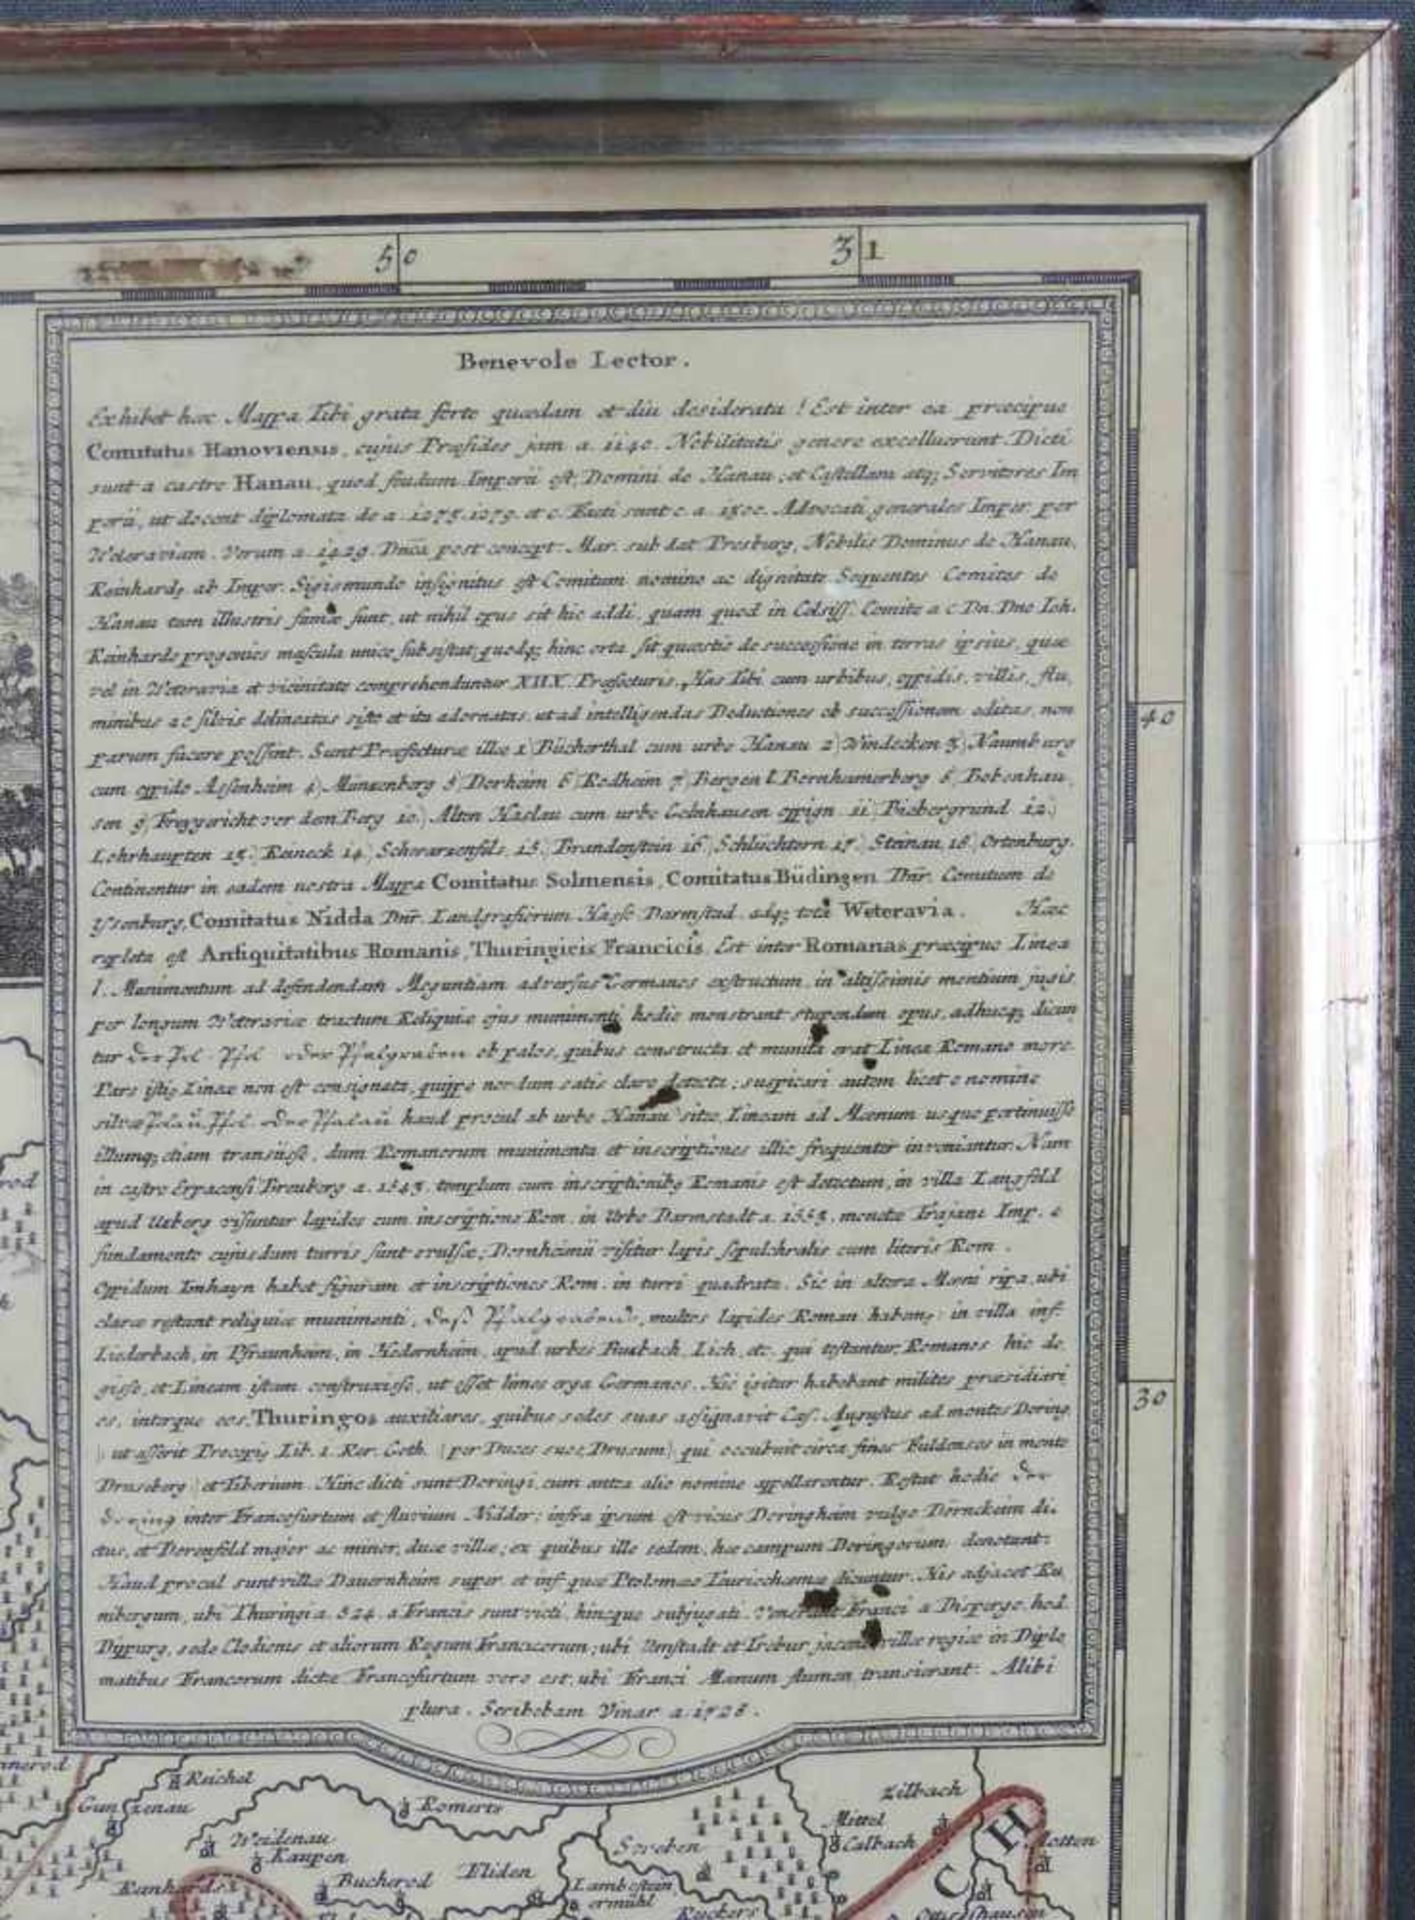 50
31
Benevole Lector.
Exhibet hæc Mappa Tibi grata forte quædam et diu desiderata! Est inter ea præcipue
Comitatus Hanoviensis, cujus Præsides jam a. 1140. Nobilitatis genere excelluerunt. Dicti
sunt a castro Hanau, quod feudum Imperii est, Domini de Hanau, et Castellani atq; Servitores Im
perii, ut docent diplomata de a. 1275. 1279. et c. Facti sunt c. a. 1500. Advocati generales Imper. per
Weteraviam. Verum a. 1429. Dnica post concept. Mar. sub dat Presburg, Nobilis Dominus de Hanau,
Reinhardg ab Imper. Sigismundo insignitus est Comitum nomine ac dignitate. Sequentes Comites de
Hanau tam illustris famæ sunt, ut nihil opus sit hic addi, quam quod in Celsiss. Comite a c. Dn. Dno Ioh.
Reinhardo progenies mascula unice subsistat, quodq; hinc orta sit quæstio de successione in terras ipsius, quæ
vel in Weteravia et vicinitate comprehenduntur XIIX. Præfecturis. Has Tibi cum urbibus, oppidis, villis, flu,
minibus ac silvis delineatas sisto et ita adornatas, ut ad intelligendas Deductiones ob successionem editas, non
parum facere possint. Sunt Præfecturæ illæ 1) Bücherthal cum urbe Hanau 2) Windecken 3) Naumburg
cum oppido Assenheim 4) Münzenberg 5) Dorheim 6) Rodheim 7) Bergen l. Bornheimerberg 8) Bobenhau,
sen 9) Freygericht vor dem Berg 10.) Alten Haslau cum urbe Gelnhausen oppign. 11) Biebergrund 12.)
Lohrhaupten 13.) Reineck 14.) Schwarzenfels, 15. Brandenstein 16) Schlüchtern 17.) Steinau, 18) Ortenburg.
Continentur in eadem nostra Mappa Comitatus Solmensis, Comitatus Büdingen Dnr. Comitum de
Ysenburg, Comitatus Nidda Dnr. Landgrafiorum Hass. Darmstad. adq; tota Weteravia. Hæc
repleta est Antiquitatibus Romanis, Thuringicis Francicis. Est inter Romanas præcipue Linea
l. Munimentum ad defendendam Moguntiam adversus Germanos exstructum, in altissimis montium jugis
per longum Weteraviæ tractum. Reliquiæ ejus munimenti hodie monstrant stupendum opus, adhucq; dicun
tur der Pol Pfol oder Pfalgraben ob palos, quibus constructa et munita erat Linea Romano more.
Pars istig Lineæ non est consignata, quippe nondum satis clare detecta; suspicari autem licet e nomine
silvæ haud procul ab urbe Hanau sitæ, Lineam ad Mœnum usque pertinuisse
illumq; etiam transiisse, dum Romanorum munimenta et inscriptiones illic frequenter inveniantur. Nam
in castro Erpacensi Breuberg a. 1543. templum cum inscriptionibg Romanis est detectum, in villa Langfeld
apud Uzberg visuntur lapides cum inscriptione Rom. in Urbe Darmstadt a. monetæ Trajani Imp. e
fundamento cujusdam turris sunt evulsæ; Dornheimii visitur lapis sepulchralis cum literis Rom.
Oppidum Imhayn habet figuram et inscriptiones Rom. in turri quadrata. Sic in altera Mœni ripa, ubi
claræ restant reliquiæ munimenti, deß Pfalgrabens, multos lapides Roman. habens: in villa inf:
Liederbach, in Pfraunheim, in Hedernheim, apud urbes Buzbach, Lich, etc. qui testantur, Romanos hic de
gisse, et Lineam istam construxisse, ut esset limes erga Germanos. Hic igitur habebant milites præsidiari
os, interque eos, Thuringos auxiliares, quibus sedes suas assignavit Cæs. Augustus ad montes Doring
(ut asserit Procopig Lib. 1. Rer. Goth. (per Duces suos, Drusum) qui occubuit circa fines Fuldenses in monte
Druseberg) et Tiberium. Hinc dicti sunt Doringi, cum antea alio nomine appellarentur. Restat hodie der
doering inter Francofurtum et fluvium Nidder; infra ipsum est vicus Doringheim vulgo Dörnckeim di,
ctus, et Dorenfeld major ac minor, duæ villæ; ex quibus ille sedem, hæ campum Doringorum denotant.
Haud procul sunt villæ Dauernheim super. et inf. quæ Ptolomæo dicuntur. His adjacet Ru
nibergum, ubi Thuringi a. 524. a Francis sunt victi, hincque subjugati. Franci a Dispargo, hod.
Dippurg, sede Clodionis et aliorum Regum Francicorum; ubi Umstadt et Trebur jacent villæ regiæ in Diplo
matibus Francorum dictæ. Francofurtum vero est, ubi Franci Mœnum flumen transierant. Alibi
plura. Scribebam Vinar. a. 1728.
40
30
Reichel
Guntzenau
Romerts
Weidenau
Kaupen
Bucherod
Fliden
Soreben
Lambestein
ermühl
Ruckers
Mittel
Calbach
Zilbach
Motten
C H